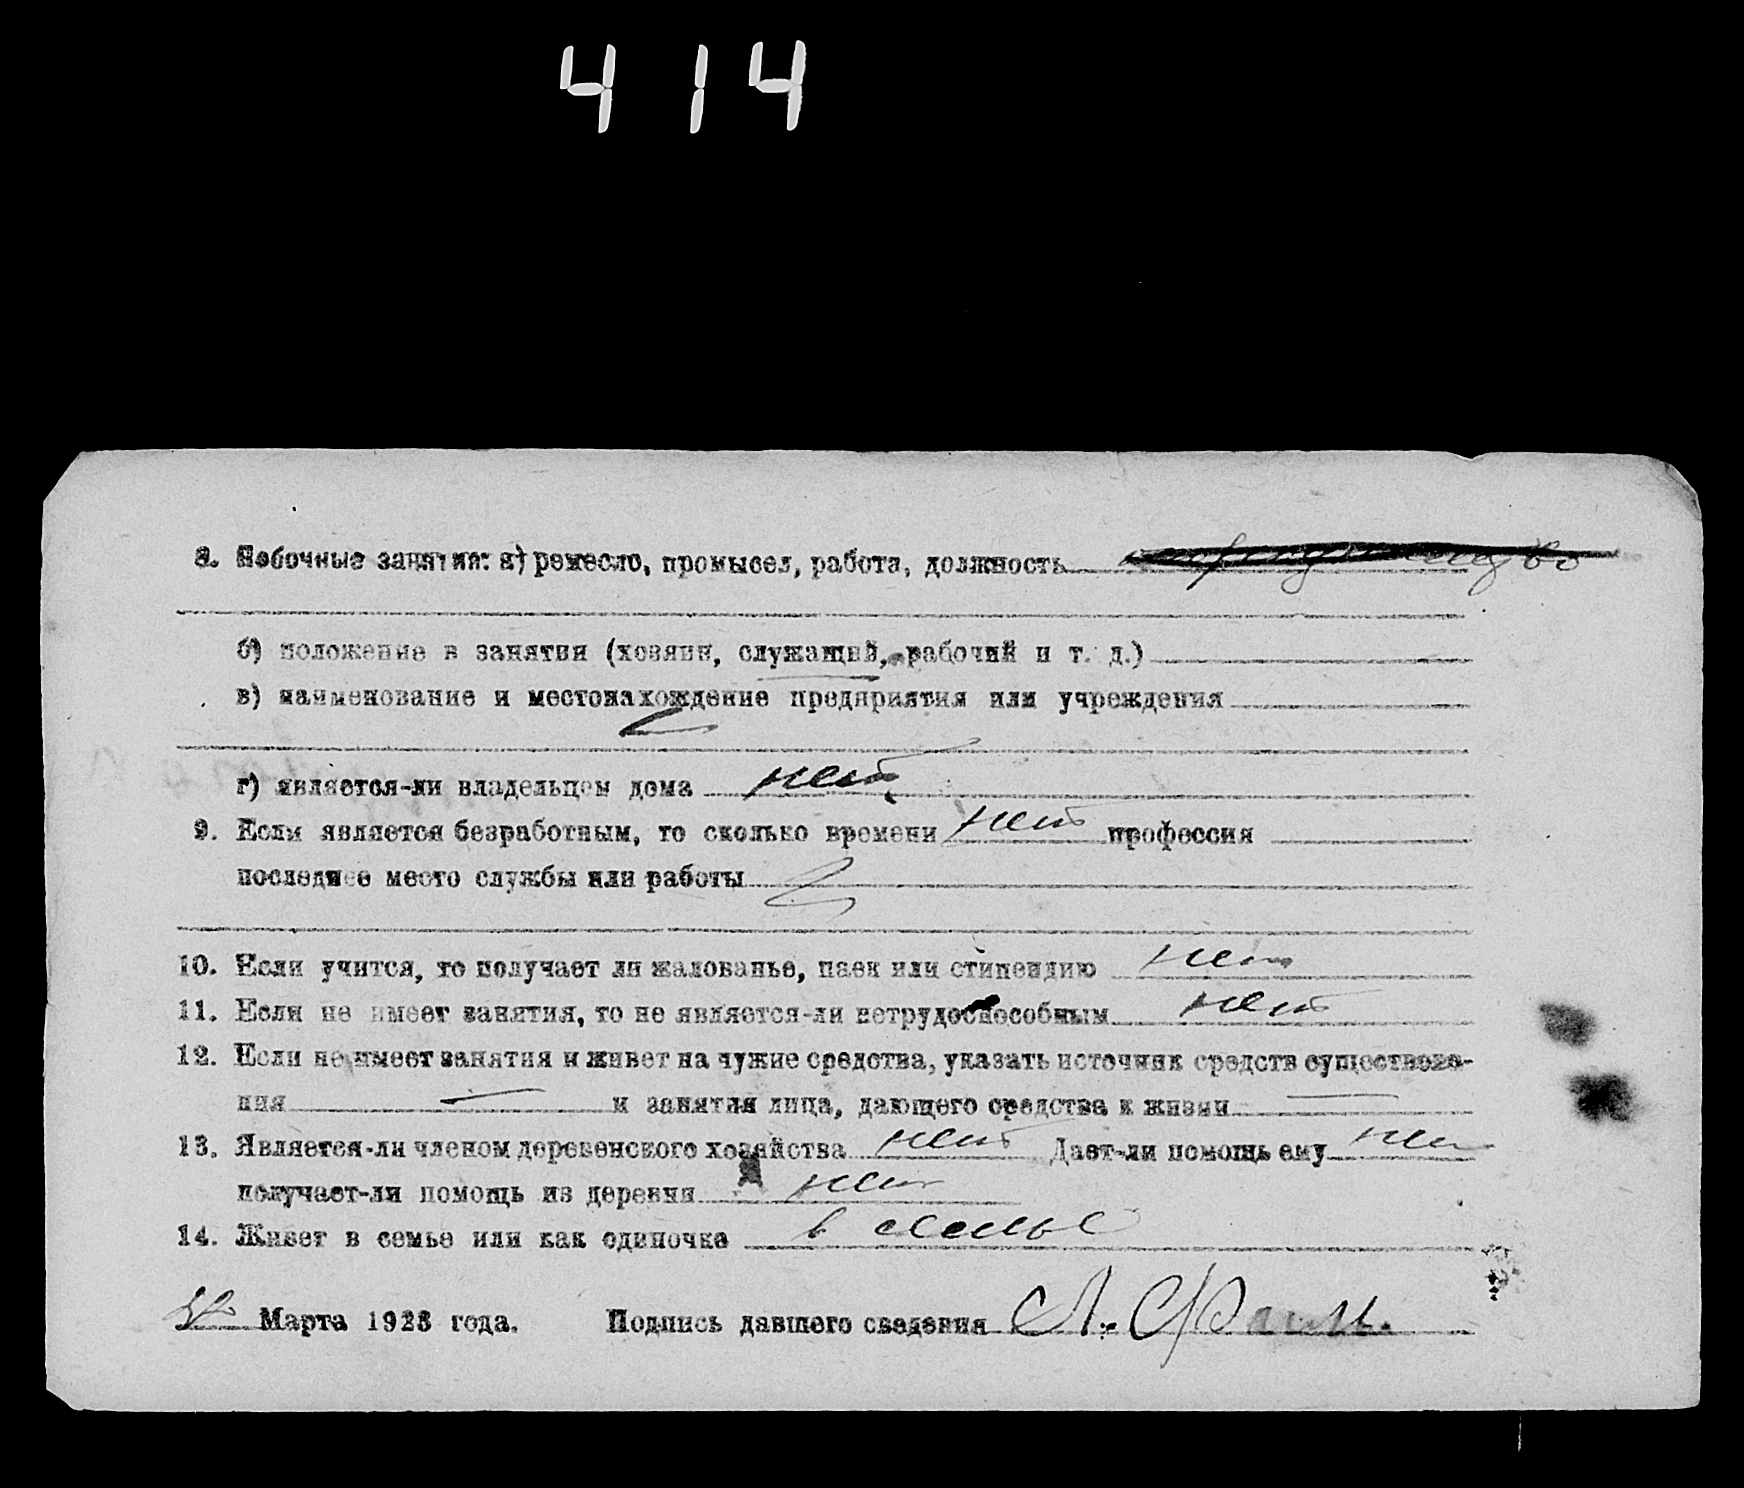 414
8. Побочные занятия: а) ремесло, промысел, работа, должность
б) положение в занятии (хозяин, служащий, рабочий и т. д.)
в) наименование и местонахождение предприятия или учреждения
г) является-ли владельцем дома нет
9. Если является безработным, то сколько времени нет профессия
последнее место службы или работы
10. Если учится, то получает ли жалованье, паек или стипендию нет
11. Если не имеет занятия, то не является-ли нетрудоспособным нет
12. Если не имеет занятия и живет на чужие средства, указать источник средств существова-
ния — и занятия лица, дающего средства к жизни —
13. Является-ли членом деревенского хозяйства нет Дает-ли помощь ему нет
получает-ли помощь из деревни нет
14. Живет в семье или как одиночка в семье
Марта 1923 года. Подпись давшего сведения А.